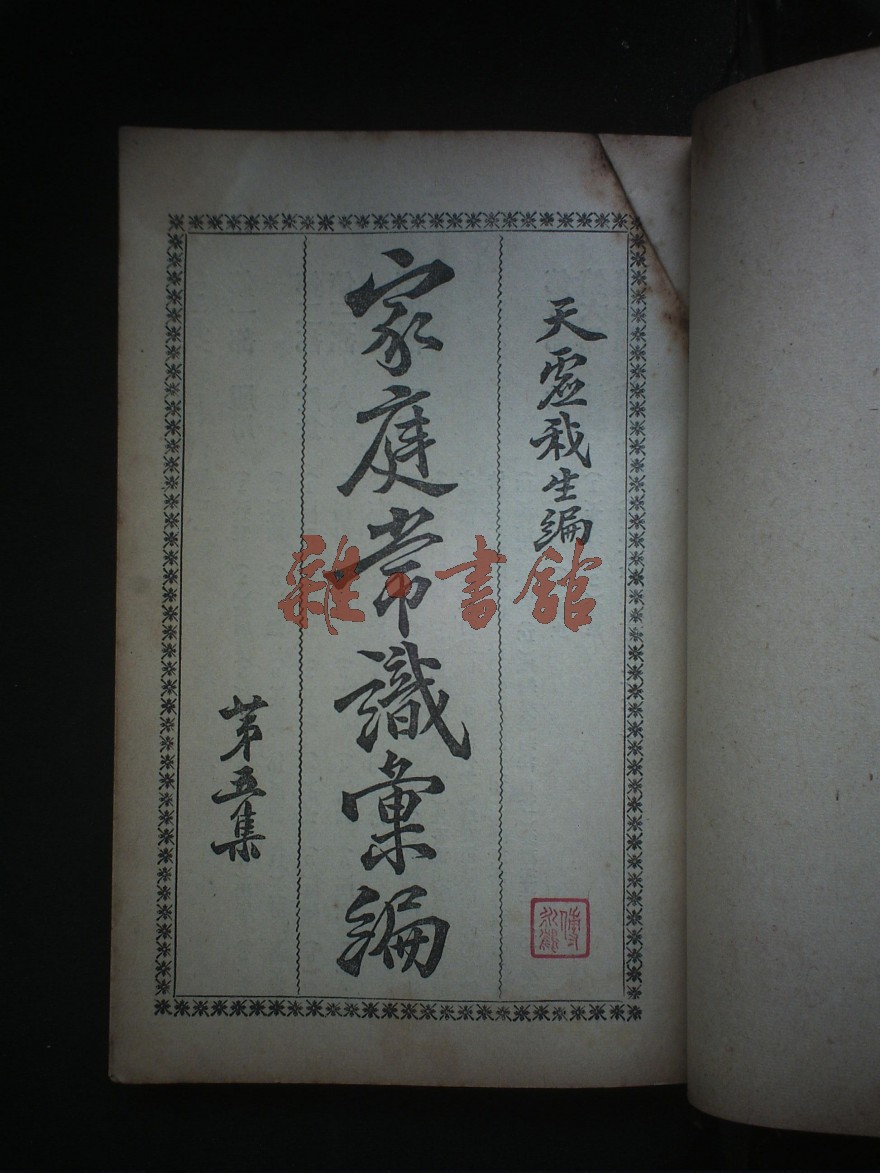 天虛我生編
家庭常識彙編
第五集
雜書館